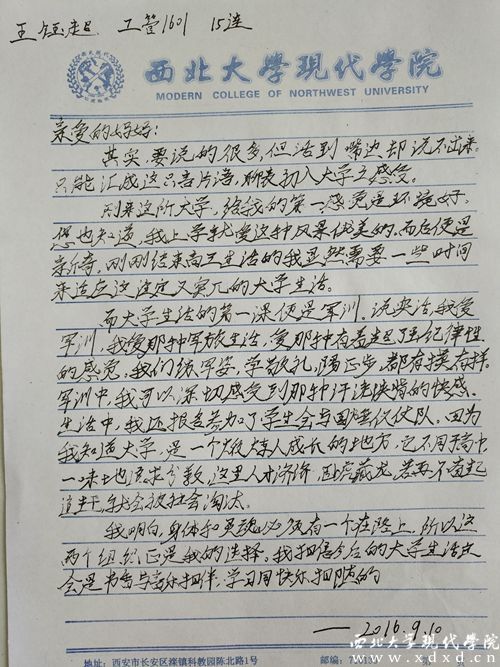 王钰超 工管1601 15连
西北大學现代学院
MODERN COLLEGE OF NORTHWEST UNIVERSITY
亲爱的妈妈:
其实要说的很多,但话到嘴边却说不出来
只能汇成这只言片语,聊表初入大学之感受。
刚来这所大学,给我的第一感觉是环境好,
您也知道,我上学就爱这种风景优美的,而后便是
新奇,刚刚结束高三生活的我显然需要一些时间
来适应这注定又寞兀的大学生活。
而大学生活的第一课便是军训,说实话,我爱
军训,我爱那种军旅生活,爱那种有着超强纪律性
的感觉,我们练军姿,学敬礼,踢正步,都有模有样。
军训中,我可以深切感受到那种汗流浃背的快感
生活中,我还报名参加了学生会与国旗仪仗队。因为
我知道大学,是一个火候催人成长的地方,它不同于高中,
一味地追求分数,这里人才济济,卧虎藏龙,若再不奋起
直追,我就会被社会淘汰。
我明白,身体和灵魂必须有一个在路上,所以这
两个组织正是我的选择。我相信今后的大学生活定
会是书香与音乐相伴,学习同快乐相随的
——2016.9.10
地址:西安市长安区滦镇科教园陈北路1号 邮编:
西北大学现代学院
www.xdxd.cn